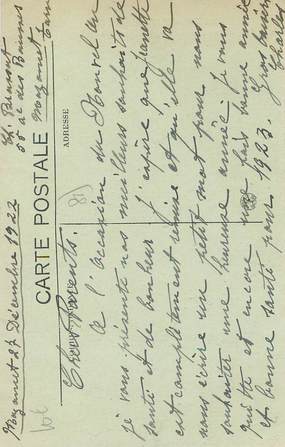 Mazamet 27 Décembre 1922
Ch. Beausort
55 a c des Bonnes
Mazamet Tarn
CARTE POSTALE
ADRESSE
Chers Parents.
A l'occasion du Nouvel an
je vous présente nos meilleurs souhaits de
santé et de bonheur J'espère que Jeanette
est complètement remise et qu'elle va
nous écrire un petit mot pour nous
souhaiter une heureuse année! je vous
quitte et encore une fois bonne année
et bonne santé pour 1923. Gros baisers
Charles